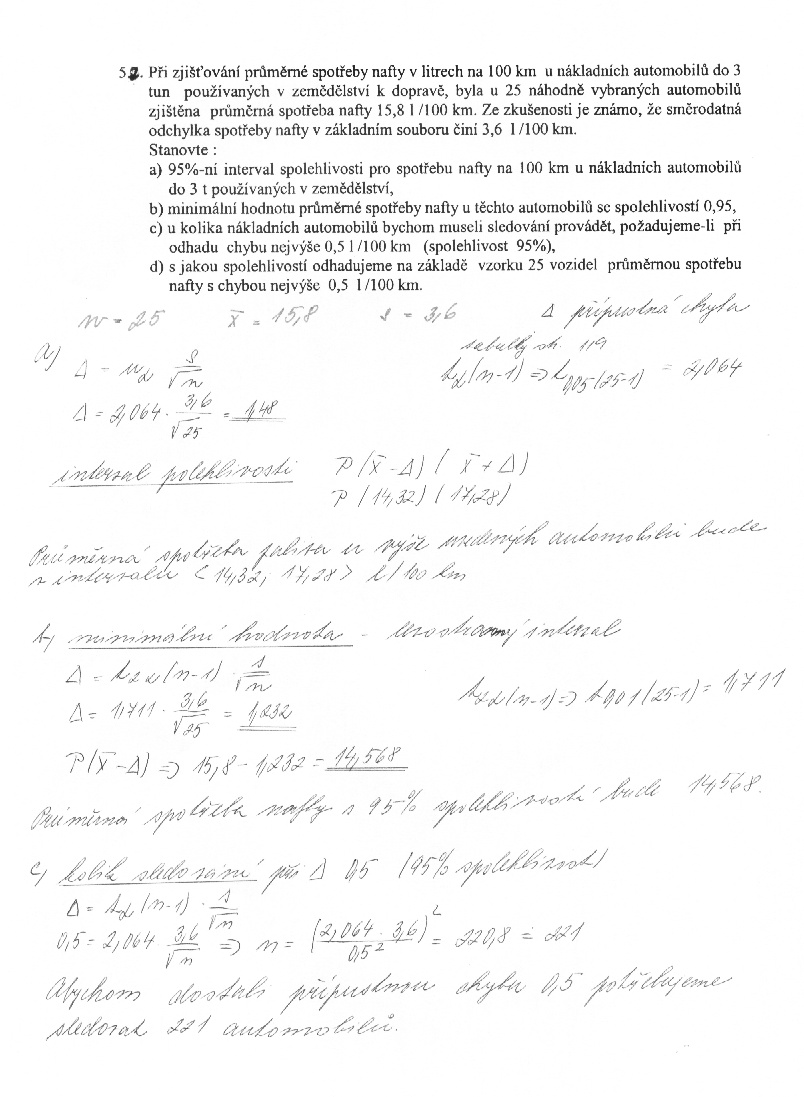 5.2. Při zjišťování průměrné spotřeby nafty v litrech na 100 km u nákladních automobilů do 3
tun používaných v zemědělství k dopravě, byla u 25 náhodně vybraných automobilů
zjištěna průměrná spotřeba nafty 15,8 l /100 km. Ze zkušenosti je známo, že směrodatná
odchylka spotřeby nafty v základním souboru činí 3,6 l /100 km.
Stanovte :
a) 95%-ní interval spolehlivosti pro spotřebu nafty na 100 km u nákladních automobilů
do 3 t používaných v zemědělství,
b) minimální hodnotu průměrné spotřeby nafty u těchto automobilů se spolehlivostí 0,95,
c) u kolika nákladních automobilů bychom museli sledování provádět, požadujeme-li při
odhadu chybu nejvýše 0,5 l /100 km (spolehlivost 95%),
d) s jakou spolehlivostí odhadujeme na základě vzorku 25 vozidel průměrnou spotřebu
nafty s chybou nejvýše 0,5 l /100 km.
n = 25 x̄ = 15,8 s = 3,6 Δ přípustná chyba
tabulky str. 119
a) Δ = uα s/√n tα(n-1) => t0,05(25-1) = 2,064
Δ = 2,064 · 3,6/√25 = 1,48
interval polehlivosti P (x̄ - Δ) ( x̄ + Δ)
P (14,32) (17,28)
Průměrná spotřeba paliva u výše uvedených automobilů bude
v intervalu < 14,32; 17,28 > l/100 km
b) minimální hodnota - levostranný interval
Δ = t2α(n-1) · s/√n
t2α(n-1) => t0,01(25-1) = 1,711
Δ = 1,711 · 3,6/√25 = 1,232
P(x̄ - Δ) => 15,8 - 1,232 = 14,568
Průměrná spotřeba nafty s 95% spolehlivostí bude 14,568.
c) kolik sledování při Δ 0,5 (95% spolehlivost)
Δ = tα(n-1) · s/√n
0,5 = 2,064 3,6/√n => n = (2,064 · 3,6 / 0,5²)² = 220,8 ≐ 221
Abychom dostali přípustnou chybu 0,5 potřebujeme
sledovat 221 automobilů.